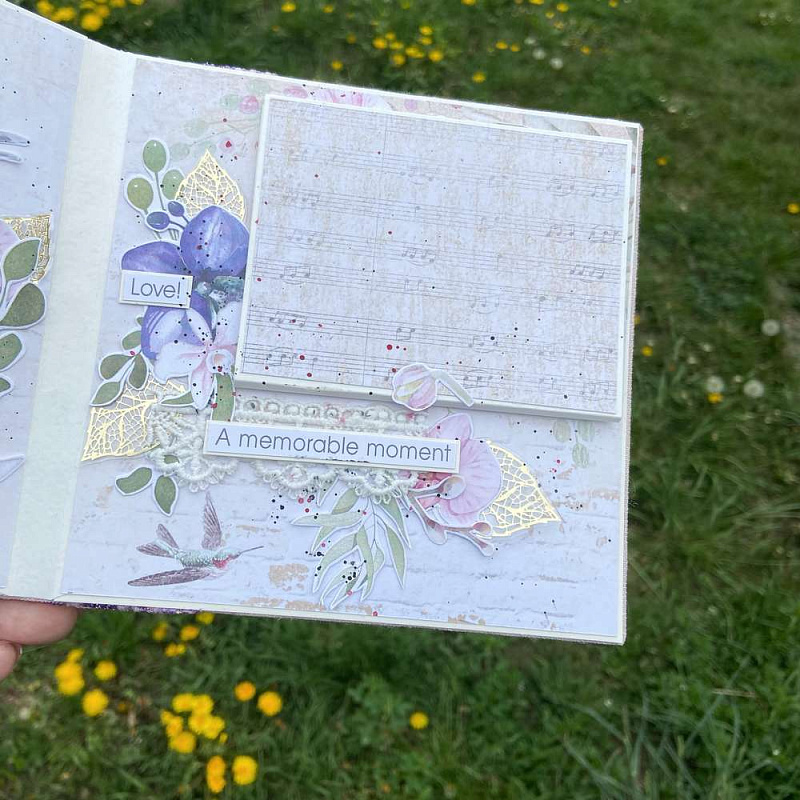 Love!
A memorable moment